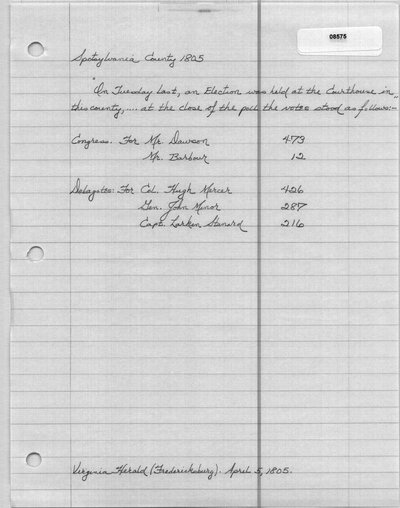 08575
Spotsylvania County 1805
"On Tuesday last, an Election was held at the Courthouse in
this county, .... at the close of the poll the votes stood as follows:—"
Congress. For Mr. Dawson 473
Mr. Barbour 12
Delegates: For Col. Hugh Mercer 426
Gen. John Minor 287
Capt. Larken Stanard 216
Virginia Herald (Fredericksburg). April 5, 1805.